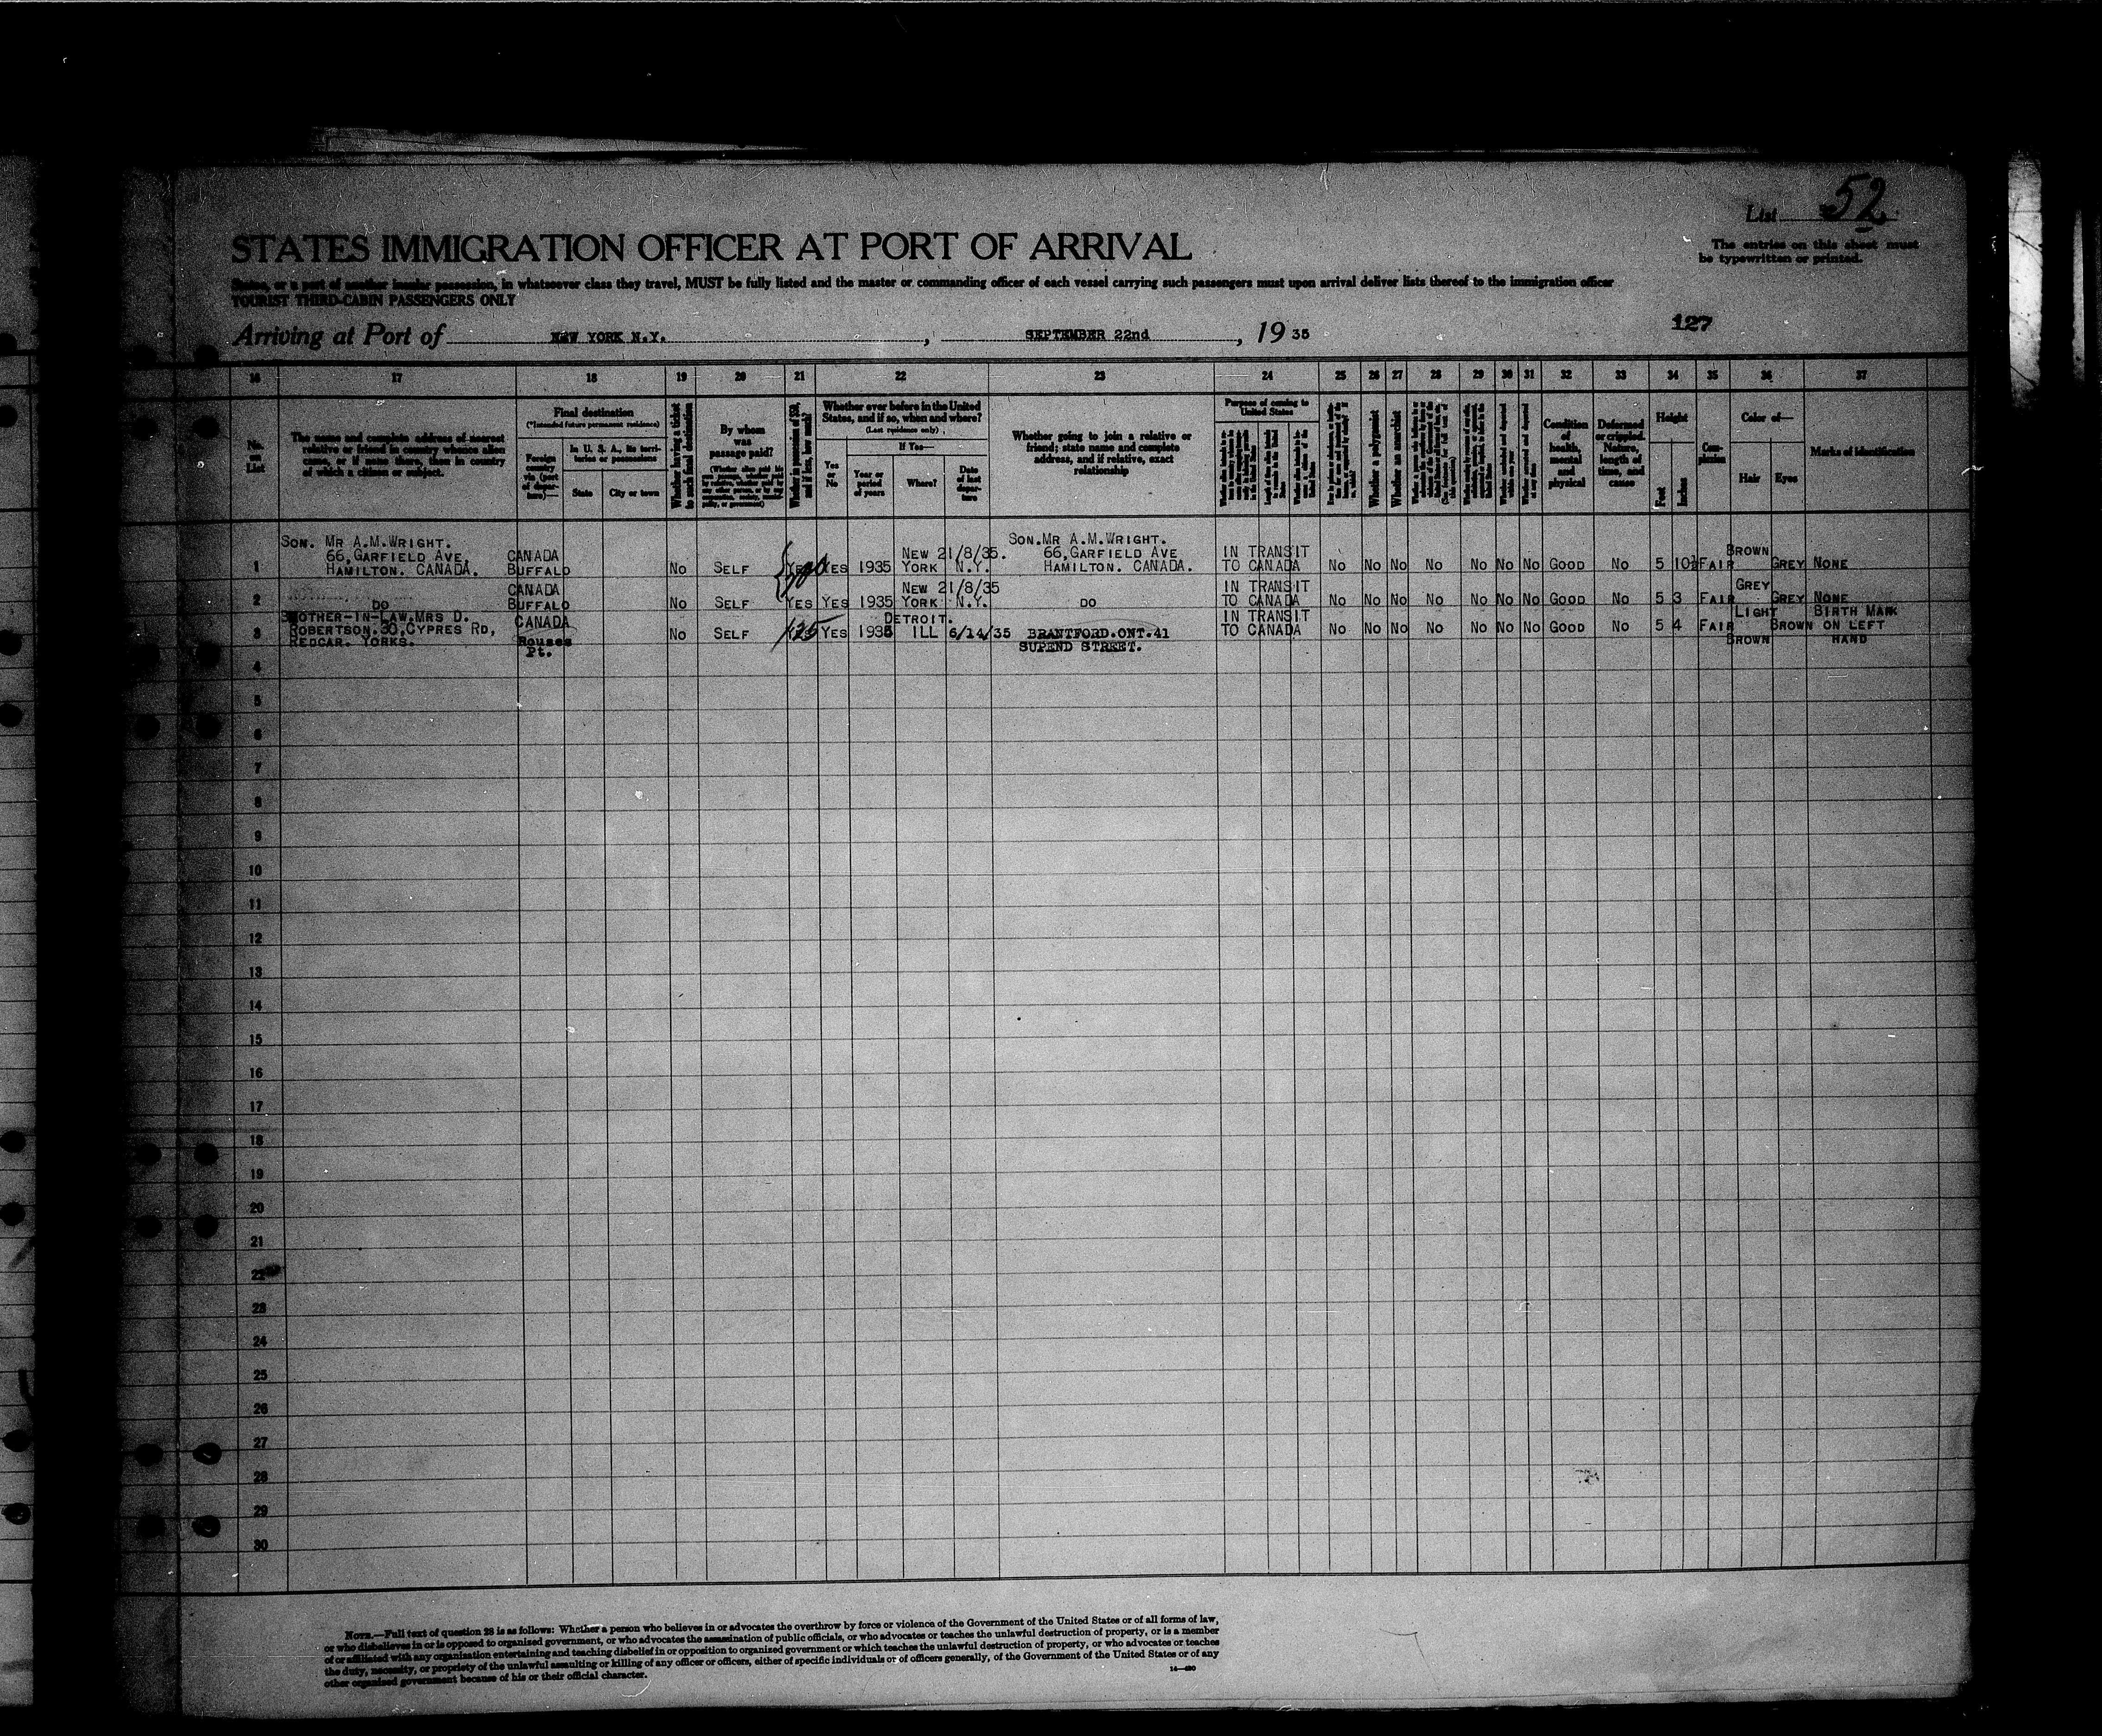 List 52
The entries on this sheet must
be typewritten or printed.
STATES IMMIGRATION OFFICER AT PORT OF ARRIVAL
States, or a part of another insular possession, in whatsoever class they travel, MUST be fully listed and the master or commanding officer of each vessel carrying such passengers must upon arrival deliver lists thereof to the immigration officer
TOURIST THIRD-CABIN PASSENGERS ONLY
127
Arriving at Port of NEW YORK N.Y., SEPTEMBER 22nd, 19 35
16 17 18 19 20 21 22 23 24 25 26 27 28 29 30 31 32 33 34 35 36 37
No. on List
The name and complete address of nearest
relative or friend in country whence alien
came, or if none there, then in country
of which a citizen or subject.
Final destination
(*Intended future permanent residence)
Foreign
country
via (port
of depar-
ture)—
In U. S. A., its terri-
tories or possessions
State
City or town
Whether having a ticket
to such final destination
By whom
was
passage paid?
Whether in possession of $50,
and if less, how much?
Whether ever before in the United
States, and if so, when and where?
(Last residence only)
Yes
or
No
If Yes—
Year or
period
of years
Where?
Date
of last
depar-
ture
Whether going to join a relative or
friend; state name and complete
address, and if relative, exact
relationship
Purpose of coming to
United States
Whether a polygamist
Whether an anarchist
Condition
of
health,
mental
and
physical
Deformed
or crippled.
Nature,
length of
time, and
cause
Height
Feet
Inches
Com-
plexion
Color of—
Hair
Eyes
Marks of identification
1
SON. MR A.M.WRIGHT.
66, GARFIELD AVE,
HAMILTON. CANADA.
CANADA
BUFFALO
NO SELF YES 200 YES 1935
NEW 21/8/35.
YORK N.Y.
SON.MR A.M.WRIGHT.
66, GARFIELD AVE
HAMILTON. CANADA.
IN TRANSIT
TO CANADA
NO NO NO NO NO NO NO GOOD NO 5 10½ FAIR BROWN GREY NONE
2
DO
CANADA
BUFFALO
NO SELF YES YES 1935
NEW 21/8/35
YORK N.Y.
DO
IN TRANSIT
TO CANADA
NO NO NO NO NO NO NO GOOD NO 5 3 FAIR GREY GREY NONE
3
MOTHER-IN-LAW.MRS D.
ROBERTSON.30,CYPRES RD,
REDCAR. YORKS.
CANADA
Rouses
Pt.
NO SELF 125 YES 1935
DETROIT.
ILL 6/14/35
BRANTFORD.ONT.41
SUPEND STREET.
IN TRANSIT
TO CANADA
NO NO NO NO NO NO NO GOOD NO 5 4 FAIR
LIGHT
BROWN
BROWN
BIRTH MARK
ON LEFT
HAND
4
5
6
7
8
9
10
11
12
13
14
15
16
17
18
19
20
21
22
23
24
25
26
27
28
29
30
NOTE.—Full text of question 28 is as follows: Whether a person who believes in or advocates the overthrow by force or violence of the Government of the United States or of all forms of law,
or who disbelieves in or is opposed to organized government, or who advocates the assassination of public officials, or who advocates or teaches the unlawful destruction of property, or is a member
of or affiliated with any organization entertaining and teaching disbelief in or opposition to organized government or which teaches the unlawful destruction of property, or who advocates or teaches
the duty, necessity, or propriety of the unlawful assaulting or killing of any officer or officers, either of specific individuals or of officers generally, of the Government of the United States or of any
other organized government because of his or their official character.
14—420